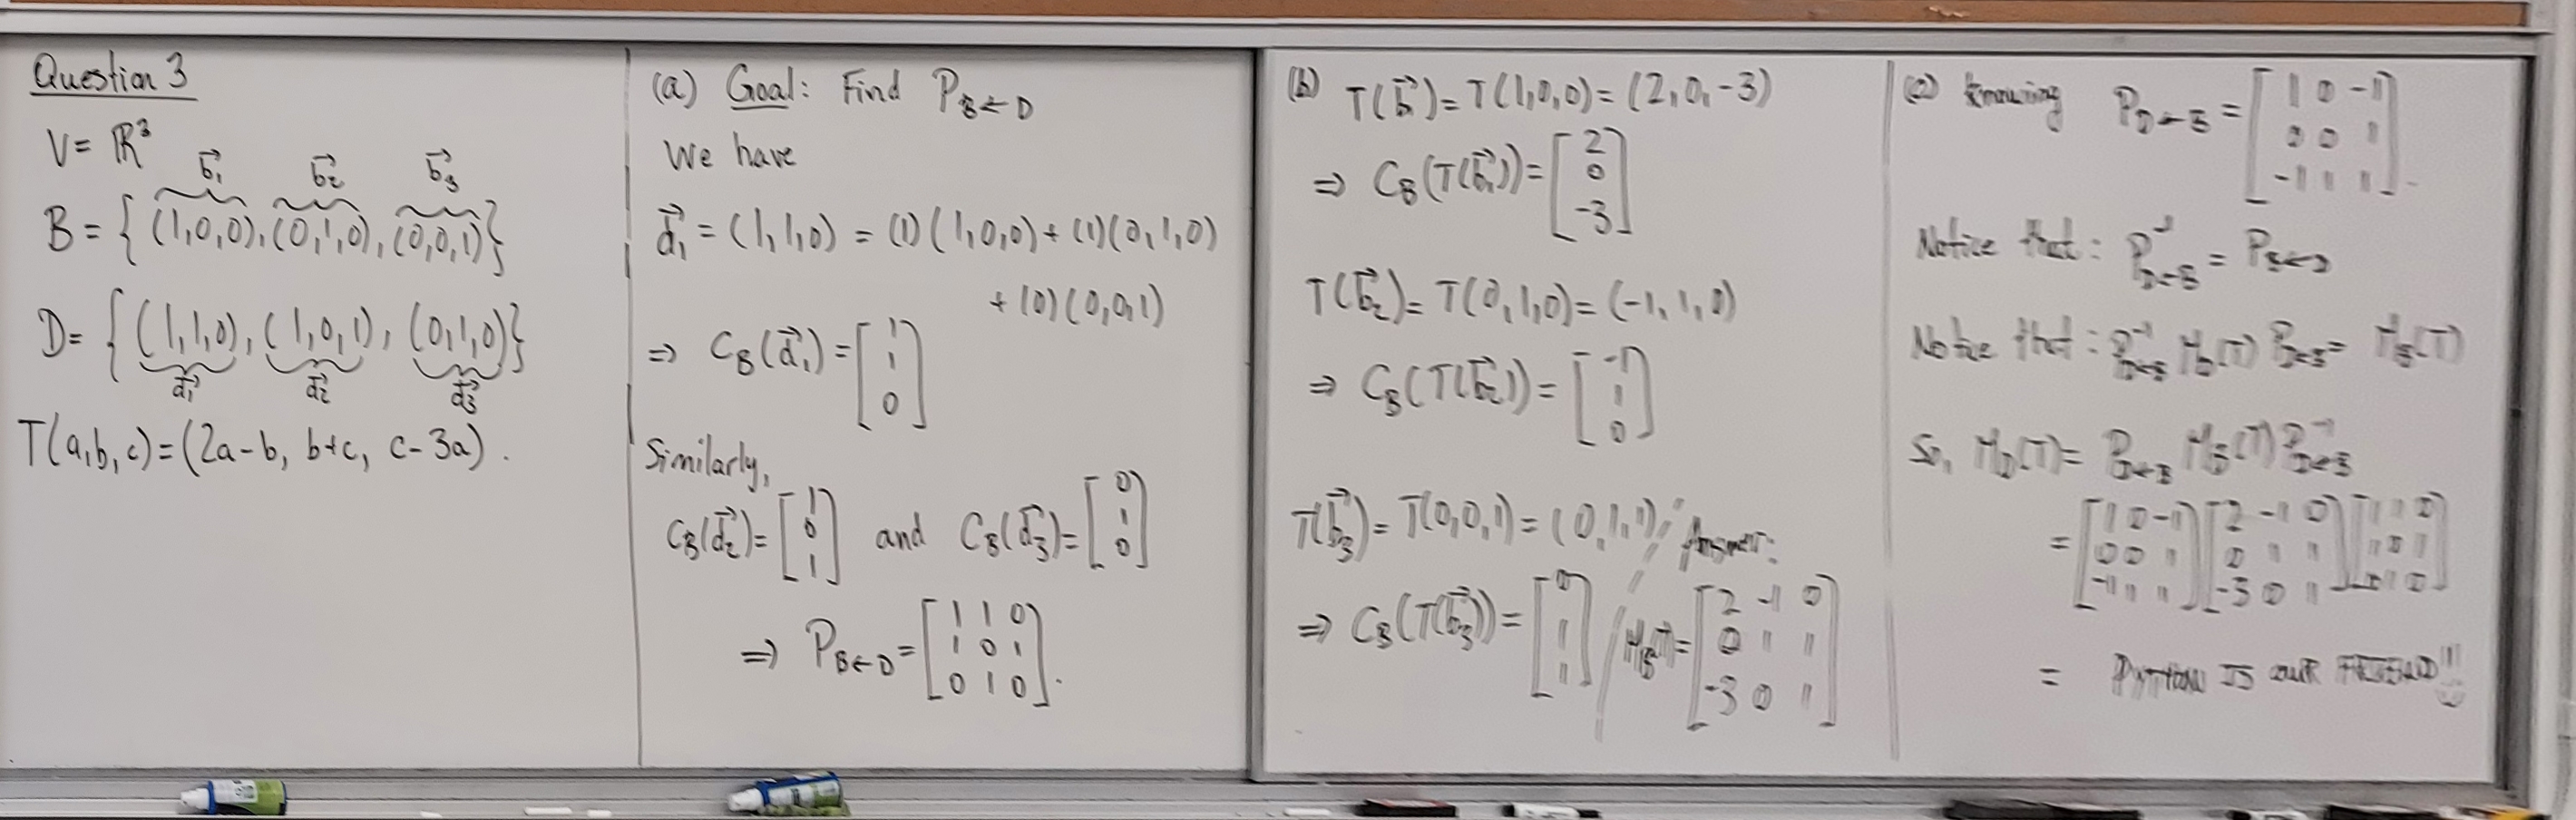 Question 3
V = ℝ³
b⃗₁ b⃗₂ b⃗₃
B = { (1,0,0), (0,1,0), (0,0,1) }
D = { (1,1,0), (1,0,1), (0,1,0) }
d⃗₁ d⃗₂ d⃗₃
T(a,b,c) = (2a-b, b+c, c-3a).
(a) Goal: Find P_{B←D}
We have
d⃗₁ = (1,1,0) = (1)(1,0,0) + (1)(0,1,0)
+ (0)(0,0,1)
⇒ C_B(d⃗₁) = [1; 1; 0]
Similarly,
C_B(d⃗₂) = [1; 0; 1] and C_B(d⃗₃) = [0; 1; 0]
⇒ P_{B←D} = [1 1 0; 1 0 1; 0 1 0].
(b) T(b⃗₁) = T(1,0,0) = (2,0,-3)
⇒ C_B(T(b⃗₁)) = [2; 0; -3]
T(b⃗₂) = T(0,1,0) = (-1,1,0)
⇒ C_B(T(b⃗₂)) = [-1; 1; 0]
T(b⃗₃) = T(0,0,1) = (0,1,1)
⇒ C_B(T(b⃗₃)) = [0; 1; 1]
Answer:
M_B(T) = [2 -1 0; 0 1 1; -3 0 1]
(c) knowing P_{D←B} = [1 0 -1; 0 0 1; -1 1 1].
Notice that: P⁻¹_{D←B} = P_{B←D}
Notice that: P⁻¹_{D←B} M_D(T) P_{D←B} = M_B(T)
So, M_D(T) = P_{D←B} M_B(T) P⁻¹_{D←B}
= [1 0 -1; 0 0 1; -1 1 1] [2 -1 0; 0 1 1; -3 0 1] [1 1 0; 1 0 1; 0 1 0]
= PYTHON IS OUR FRIEND!!